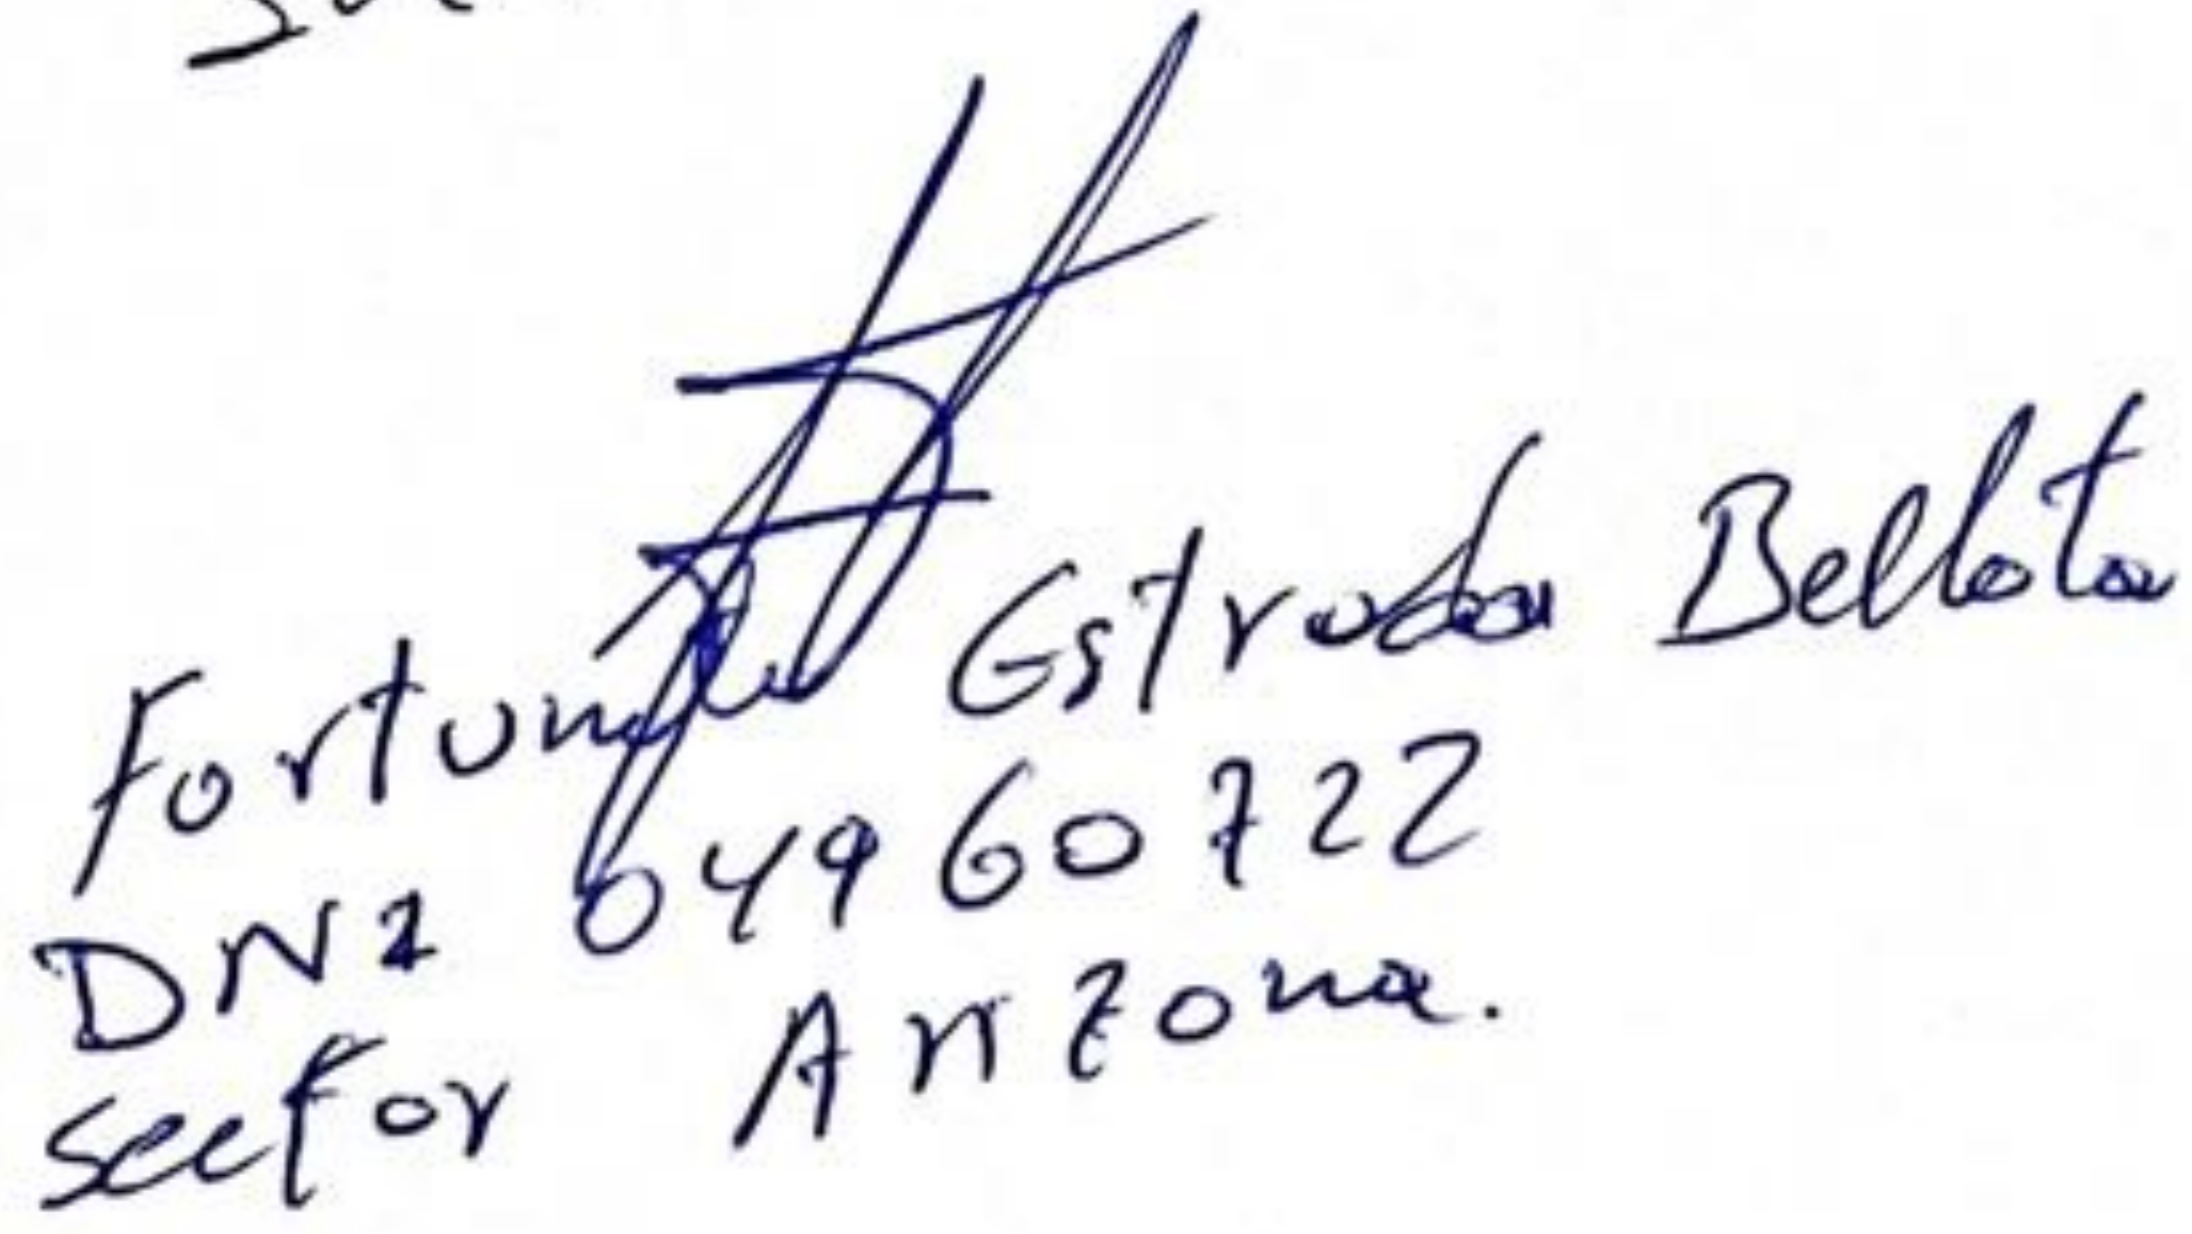 Estrada Bellota
DNI 04960722
sector Arizona.